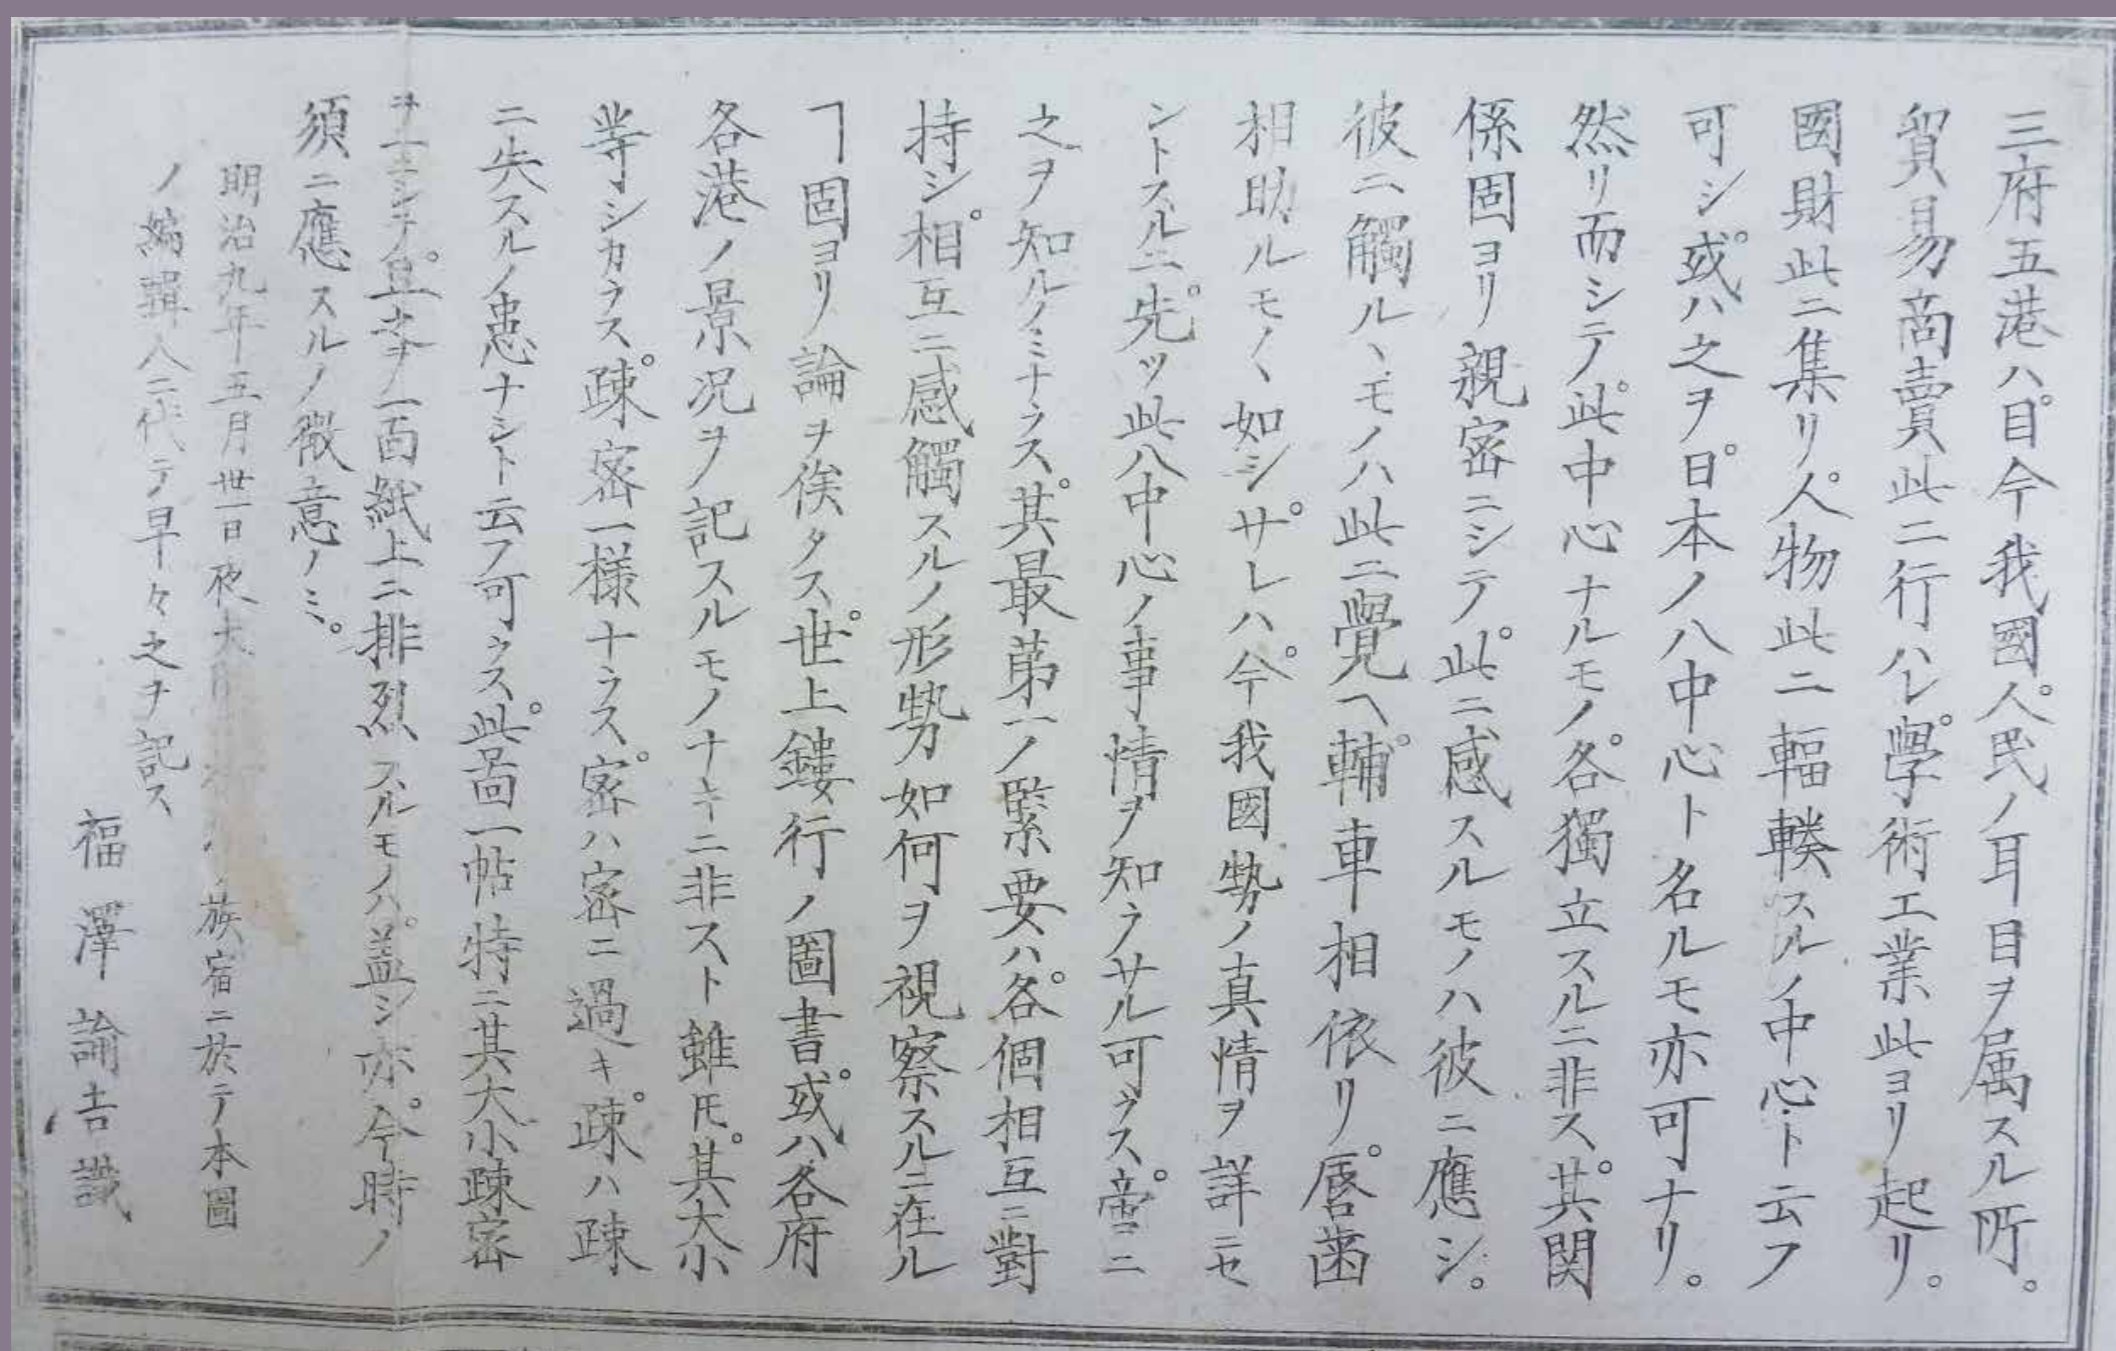 三府五港ハ。目今我國人。民ノ耳目ヲ属スル所。
貿易商賣此ニ行ハレ。學術工業此ヨリ起リ。
國財此ニ集リ。人物此ニ輻輳スルノ中心ト云フ
可シ。或ハ之ヲ。日本ノ八中心ト名ルモ亦可ナリ。
然リ而シテ。此中心ナルモノ。各獨立スルニ非ス。其関
係固ヨリ親密ニシテ。此ニ感スルモノハ彼ニ應シ。
彼ニ觸ルヽモノハ此ニ覺ヘ。輔車相依リ。唇歯
相助ルモノヽ如シ。サレハ。今我國勢ノ真情ヲ詳ニセ
ントスルニ。先ツ此八中心ノ事情ヲ知ラサル可ラス。啻ニ
之ヲ知ルノミナラス。其最第一ノ緊要ハ。各個相互ニ對
持シ。相互ニ感觸スルノ形勢如何ヲ視察スルニ在ル
ヿ固ヨリ論ヲ俟タス。世上鏤行ノ圖書。或ハ各府
各港ノ景况ヲ記スルモノナキニ非スト雖𪜈。其大小
等シカラス。疎密一様ナラス。密ハ密ニ過キ。疎ハ疎
ニ失スルノ患ナシト云フ可ラス。此圖一帖特ニ其大小疎密
ヲ一ニシテ。且之ヲ一面紙上ニ排烈スルモノハ。蓋シ亦。今時ノ
須ニ應スルノ微意ノミ。
明治九年五月卅一日夜大 旅宿ニ於テ本圖
ノ編輯人ニ代テ早々之ヲ記ス
福澤諭吉識